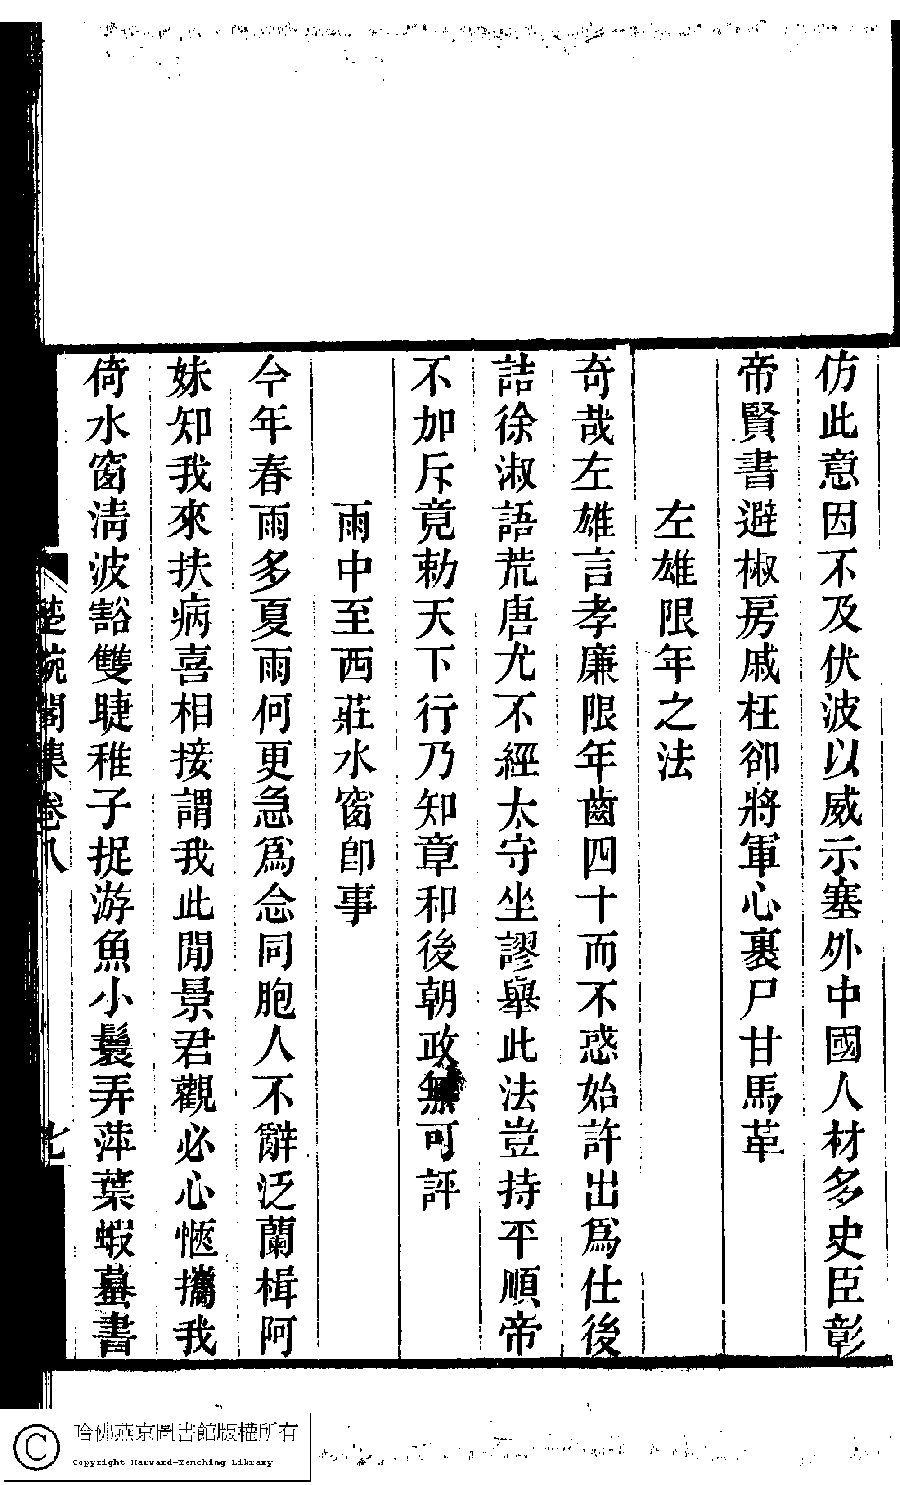 仿此意因不及伏波以威示塞外中國人材多史臣彰
帝賢書避椒房戚枉卻將軍心裏尸甘馬革
左雄限年之法
奇哉左雄言孝廉限年齒四十而不惑始許出爲仕後
詰徐淑語荒唐尤不經太守坐謬舉此法豈持平順帝
不加斥竟勅天下行乃知章和後朝政無可評
雨中至西莊水窗卽事
今年春雨多夏雨何更急爲念同胞人不辭泛蘭楫阿
妹知我來扶病喜相接謂我此閒景君觀必心愜攜我
倚水窗淸波豁雙睫稚子捉游魚小鬟弄萍葉蝦蟇書
閣集卷八
七
哈佛燕京圖書館版權所有
Copyright Harvard-Yenching Library